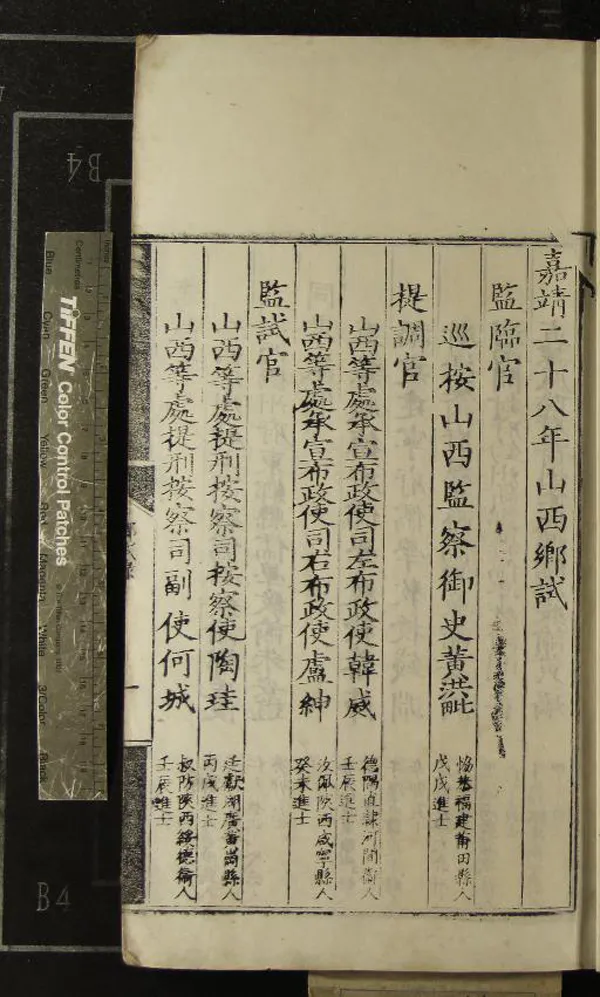 嘉靖二十八年山西鄉試
監臨官
巡按山西監察御史黃洪毗
惟恭福建莆田縣人
戊戌進士
提調官
山西等處承宣布政使司左布政使韓威
德隅直隷河間衞人
壬辰進士
山西等處承宣布政使司右布政使盧紳
汝佩陝西咸寧縣人
癸未進士
監試官
山西等處提刑按察司按察使陶珪
廷獻湖廣黃岡縣人
丙戌進士
山西等處提刑按察司副使何城
叔防陝西綏德衞人
壬辰進士
錄
一
B4
B4
TIFFEN Color Control Patches
© The Tiffen Company, 2007
Centimetres
Inches
Blue
Cyan
Green
Yellow
Red
Magenta
White
3/Color
Black